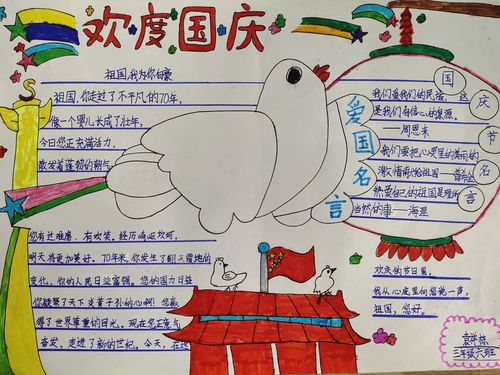 欢度国庆
祖国,我为你自豪
祖国,你走过了不平凡的70年,
像一个婴儿长成了壮年,
今日您正充满活力,
散发着蓬勃的朝气
您有过难磨、有欢笑。经历崎岖坎坷,
明天将更加美好。70年来,你发生了翻天覆地的
变化,你的人民日益富强。您的国力日益
你凝聚了天下炎黄子孙的心啊! 您赢
得了世界尊重的目光。现在您正意气
奋发,走进了新的世纪。今天,在这
爱国名言
国庆节名言
我们爱我们的民族,这
是我们自信心的泉源。
——周恩来
我们要把心灵里的美丽的
激情献给祖国——普希金
热爱自己的祖国是理所
当然的事——海涅
欢庆的节日里。
我从心底里向您说一声,
祖国,您好。
三年级六班